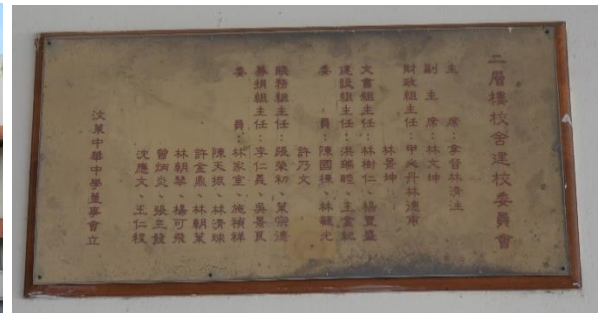 二層樓校舍建校委員會
主席：拿督林清注
副主席：林文坤
財政組主任：甲必丹林德甫
林景坤
文書組主任：林樹仁、楊豐盛
建設組主任：洪瑞睦、王金紀
委員：陳國操、林龍光
許乃文
總務組主任：張榮初、葉宗德
募捐組主任：李仁義、吳景良
委員：林家室、施禎祥
陳天振、林清球
許金鼎、林朝葉
林朝琴、楊可飛
曾炳炎、張三銓
沈應文、王仁程
汶萊中華中學董事會立